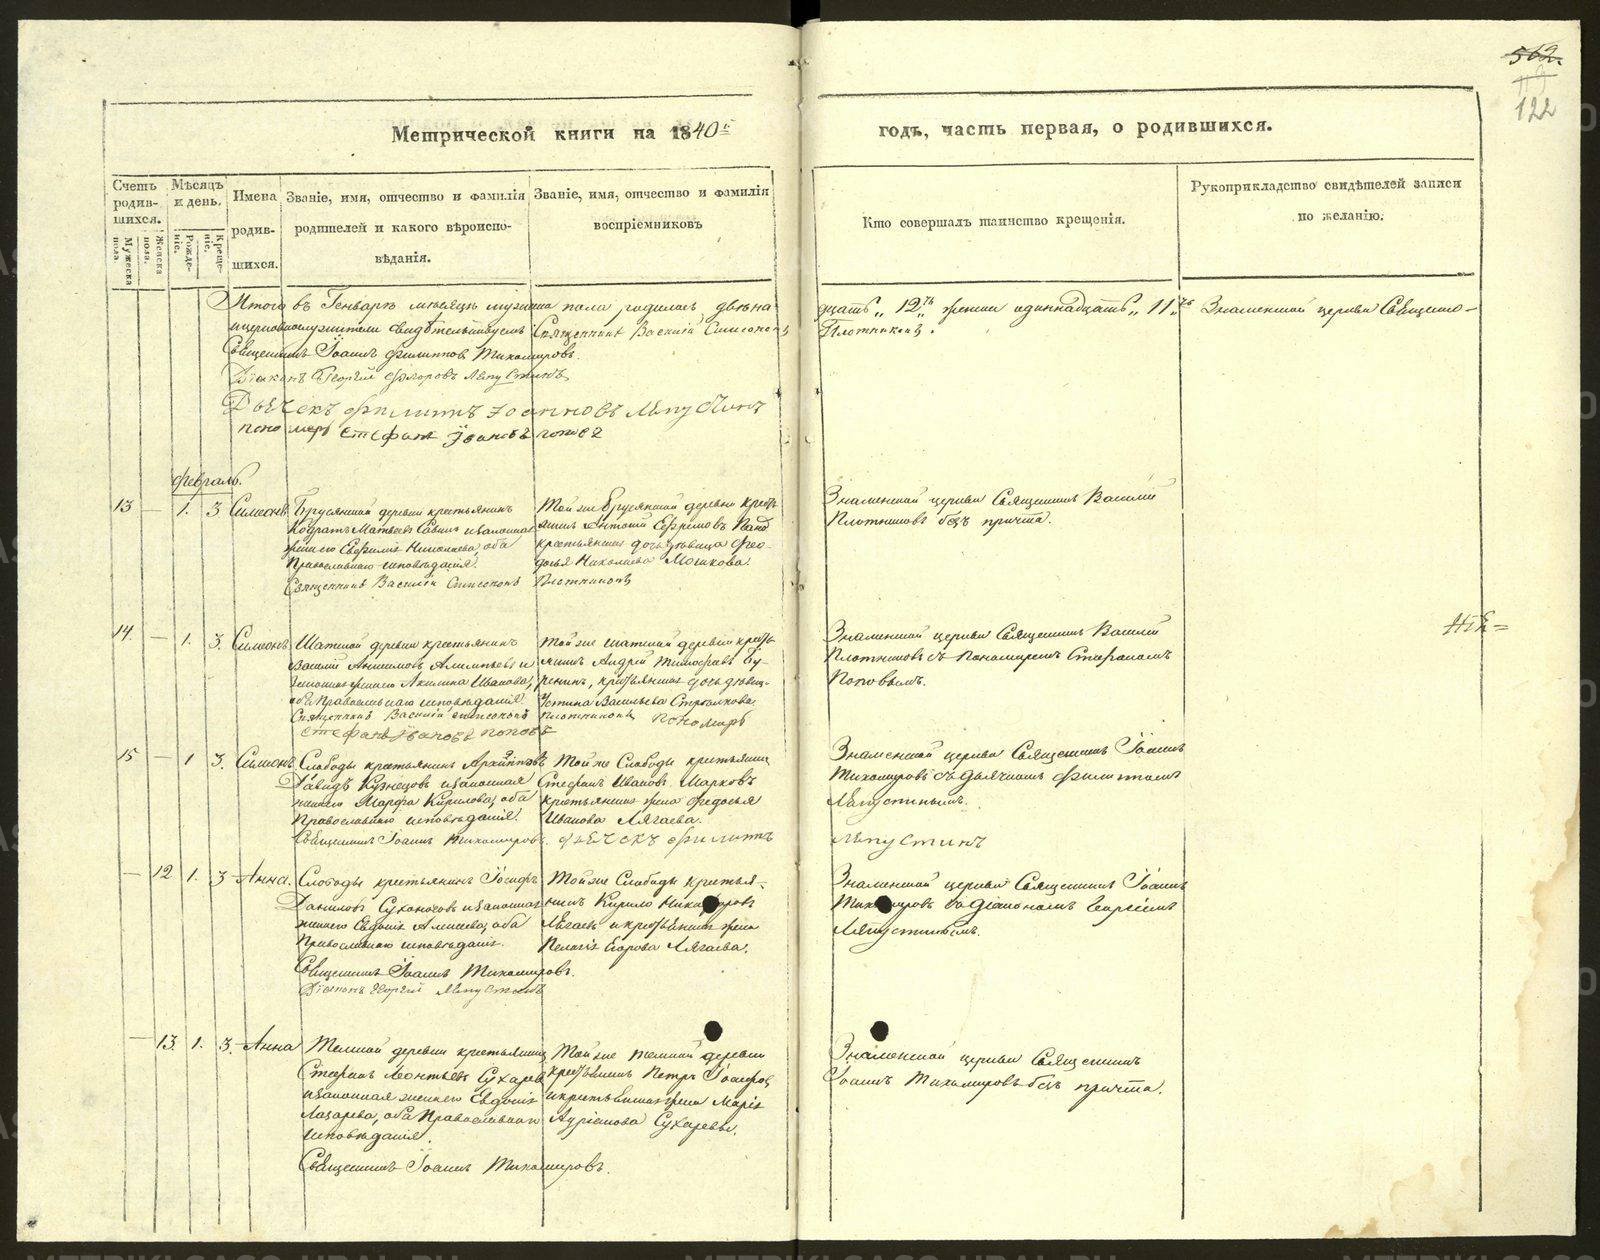 562.
119
122
Метрической книги на 1840й
годъ, часть первая, о родившихся.
Счетъ родив-шихся.
Мужеска пола.
Женска пола.
Мѣсяцъ и день.
Рожде-ніе.
Креще-ніе.
Имена родив-шихся.
Званіе, имя, отчество и фамилія
родителей и какого вѣроиспо-
вѣданія.
Званіе, имя, отчество и фамилія
воспріемниковъ
Кто совершалъ таинство крещенія.
Рукоприкладство свидѣтелей записи
по желанію.
Итого въ Генварѣ мѣсяцѣ мужеска пола родилось двѣна-
дцать „12ть женска одиннадцать „11ть Знаменской церкви Священно-
и церковнослужители свидѣтельствуемъ Священникъ Василій Симеоновъ
Плотниковъ.
Священникъ Іоаннъ Филипповъ Тихомировъ.
Діаконъ Георгій Ляпустинъ
Дьячекъ Филиппъ Іоанновъ Ляпустинъ
пономарь Стефанъ Ивановъ Поповъ
Февраль.
13 — 1. 3 Симеонъ
Брусянской деревни крестьянинъ
Матвеевъ и законная
жена его Николаева, оба
Православнаго исповѣданія.
Священникъ Василій Симеоновъ Плотниковъ
Той же Брусянской деревни кресть-
янинъ Антоній Ефремовъ
крестьянская дочь дѣвица Фео-
досья Николаева Мошкова.
Знаменской церкви Священникъ Василій
Плотниковъ безъ причта.
14. — 1. 3. Симеонъ
деревни крестьянинъ
Василій и
законная жена его Акилина Иванова,
оба Православнаго исповѣданія.
Священникъ Василій Симеоновъ Плотниковъ пономарь
Стефанъ Ивановъ Поповъ
Той же деревни кресть-
янинъ Андрей Тимофеевъ Бу-
крестьянская дочь дѣвица
Устина Васильева
Знаменской церкви Священникъ Василій
Плотниковъ съ Пономаремъ Стефаномъ
Поповымъ.
15 — 1 3. Симеонъ
Слободы крестьянинъ
Давидъ Кузнецовъ и законная
жена его Марфа Кирилова, оба
Православнаго исповѣданія.
Священникъ Іоаннъ Тихомировъ. Дьячекъ Филиппъ
Той же Слободы крестьянинъ
Стефанъ Ивановъ Марковъ
крестьянская жена Федосья
Иванова Лягаева.
Знаменской церкви Священникъ Іоаннъ
Тихомировъ съ дьячкомъ Филиппомъ
Ляпустинымъ.
Ляпустинъ
— 12 1. 3 Анна.
Слободы крестьянинъ Іосифъ
Даниловъ Сухоносовъ и законная
жена его Евдокія Алексеева, оба
Православнаго исповѣданія.
Священникъ Іоаннъ Тихомировъ.
Діаконъ Георгій Ляпустинъ
Той же Слободы крестья-
нинъ Кирило Никифоровъ
Лягаевъ и крестьянская жена
Пелагія Егорова Лягаева.
Знаменской церкви Священникъ Іоаннъ
Тихомировъ съ діакономъ Георгіемъ
Ляпустинымъ.
— 13. 1. 3. Анна
деревни крестьянинъ
Стефанъ Леонтьевъ Сухаревъ
и законная жена его Евдокія
Лазарева, оба Православнаго
исповѣданія.
Священникъ Іоаннъ Тихомировъ.
Той же деревни
крестьянинъ Петръ
и крестьянская жена Марія
Андріанова Сухаревы.
Знаменской церкви Священникъ
Іоаннъ Тихомировъ безъ причта.